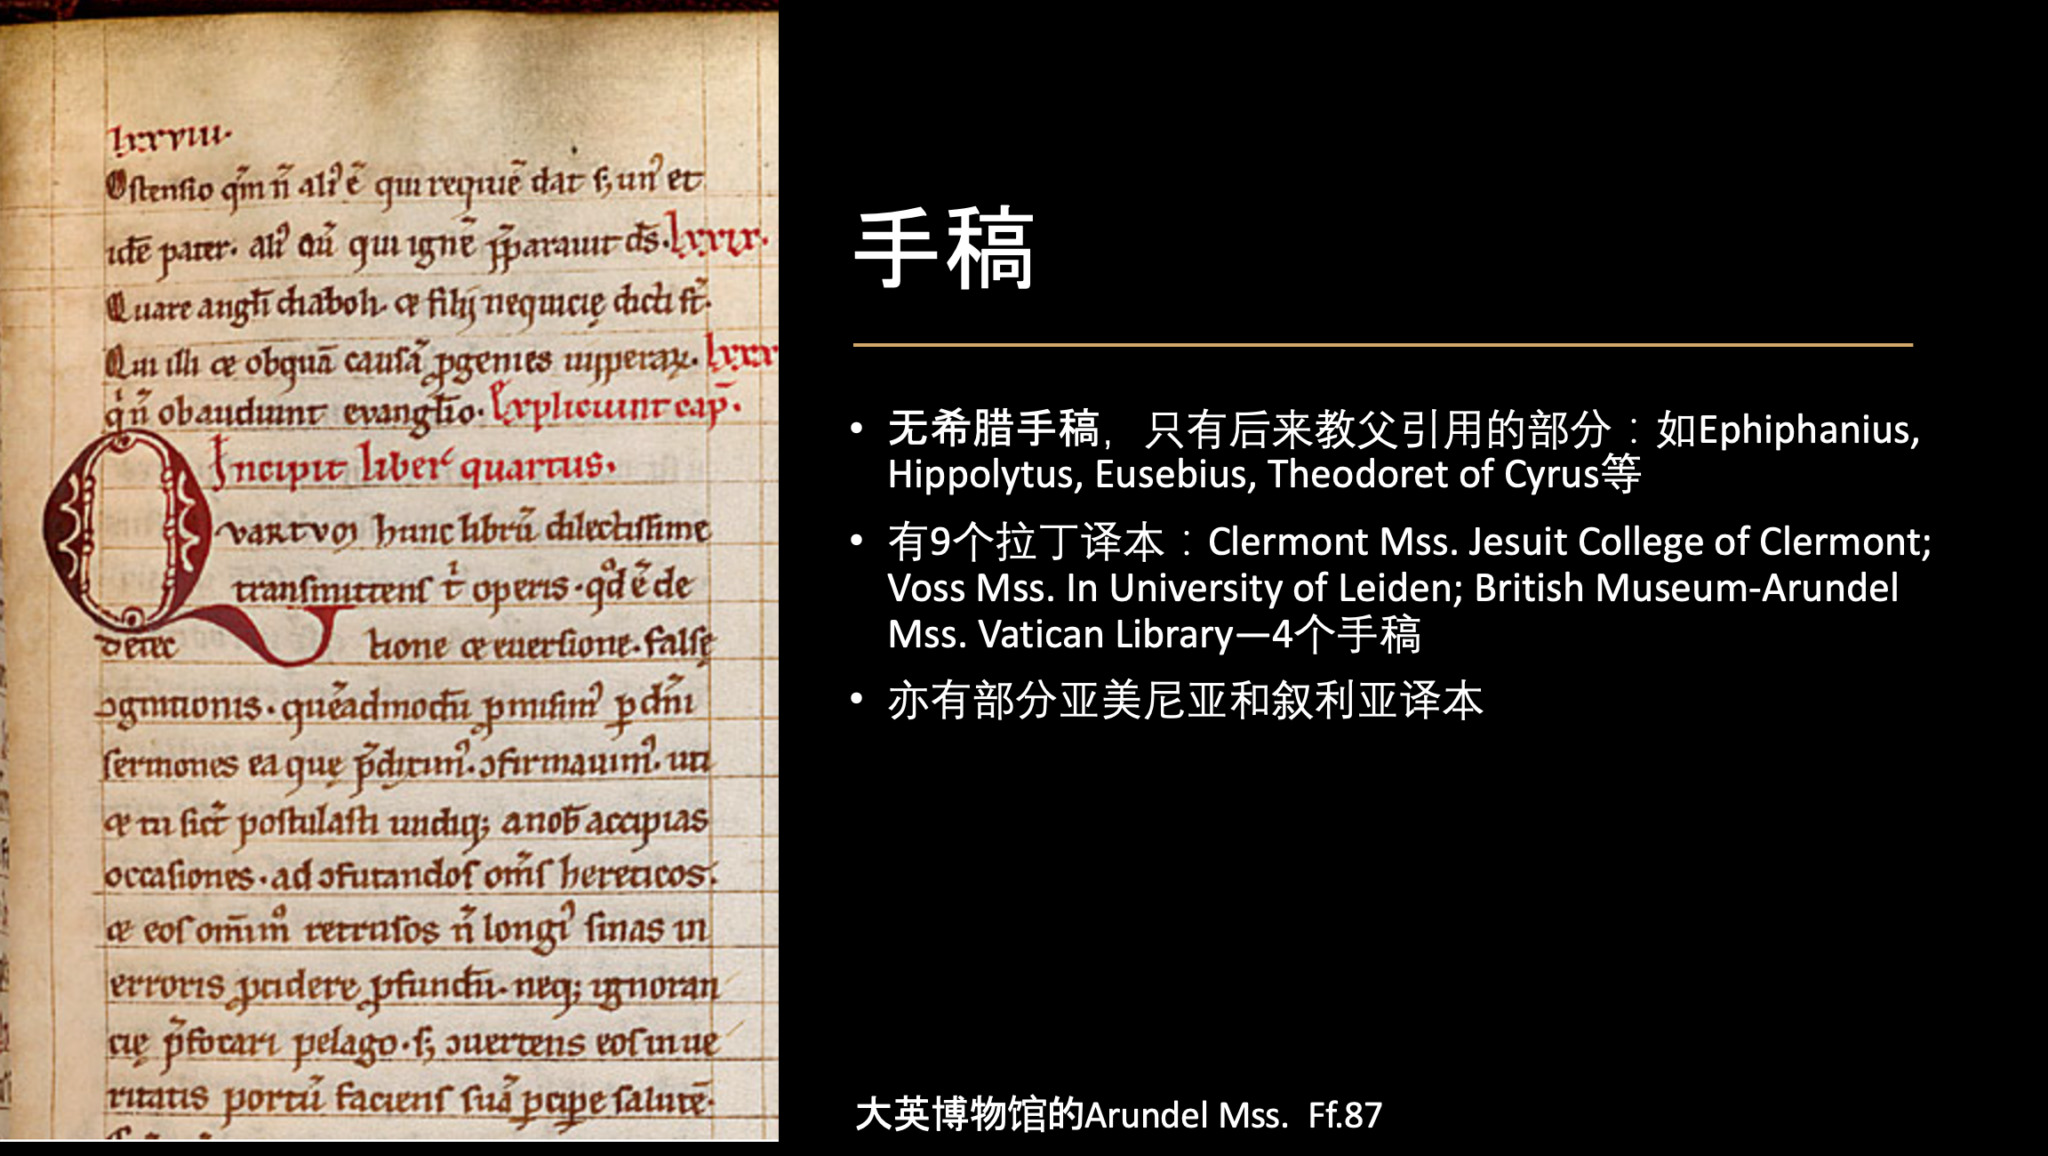 lxxviii.
Ostensio qm̄ n̄ ali᾽ ē qui requiē dat s; un᾽ et
idē pater. ali᾽ aū qui ignē p̄parauit ds̄. lxxix.
Quare angli diaboli. & filij nequicię dicti st̄.
Qui illi & obquā causā ꝓgenies uipperaꝝ. lxxx
qi n̄ obaudiunt evanglio. Expliciunt cap̄.
Incipit liber quartus.
QVARTVM hunc librū dilectissime
transmittens ti operis. qd̄ ē de
detec tione & euersione. falsę
ɔgnitionis. quēadmodū ꝓmisim᾽ ꝑ dn̄i
sermones ea quę p̄dixim᾽. ɔfirmauim᾽. uti
& tu sict̄ postulasti undiq; a nob̄ accipias
occasiones. ad ɔfutandos om̄s hereticos.
& eos om̄im̊ retrusos n̄ longi᾽ sinas in
erroris ꝓcidere ꝓfundū. neq; ignoran
cię p̄focari pelago. s; ɔuertens eos in ue
ritatis portū faciens suā ꝑcipe salutē.
手稿
• 无希腊手稿，只有后来教父引用的部分：如Ephiphanius,
Hippolytus, Eusebius, Theodoret of Cyrus等
• 有9个拉丁译本：Clermont Mss. Jesuit College of Clermont;
Voss Mss. In University of Leiden; British Museum-Arundel
Mss. Vatican Library—4个手稿
• 亦有部分亚美尼亚和叙利亚译本
大英博物馆的Arundel Mss. Ff.87